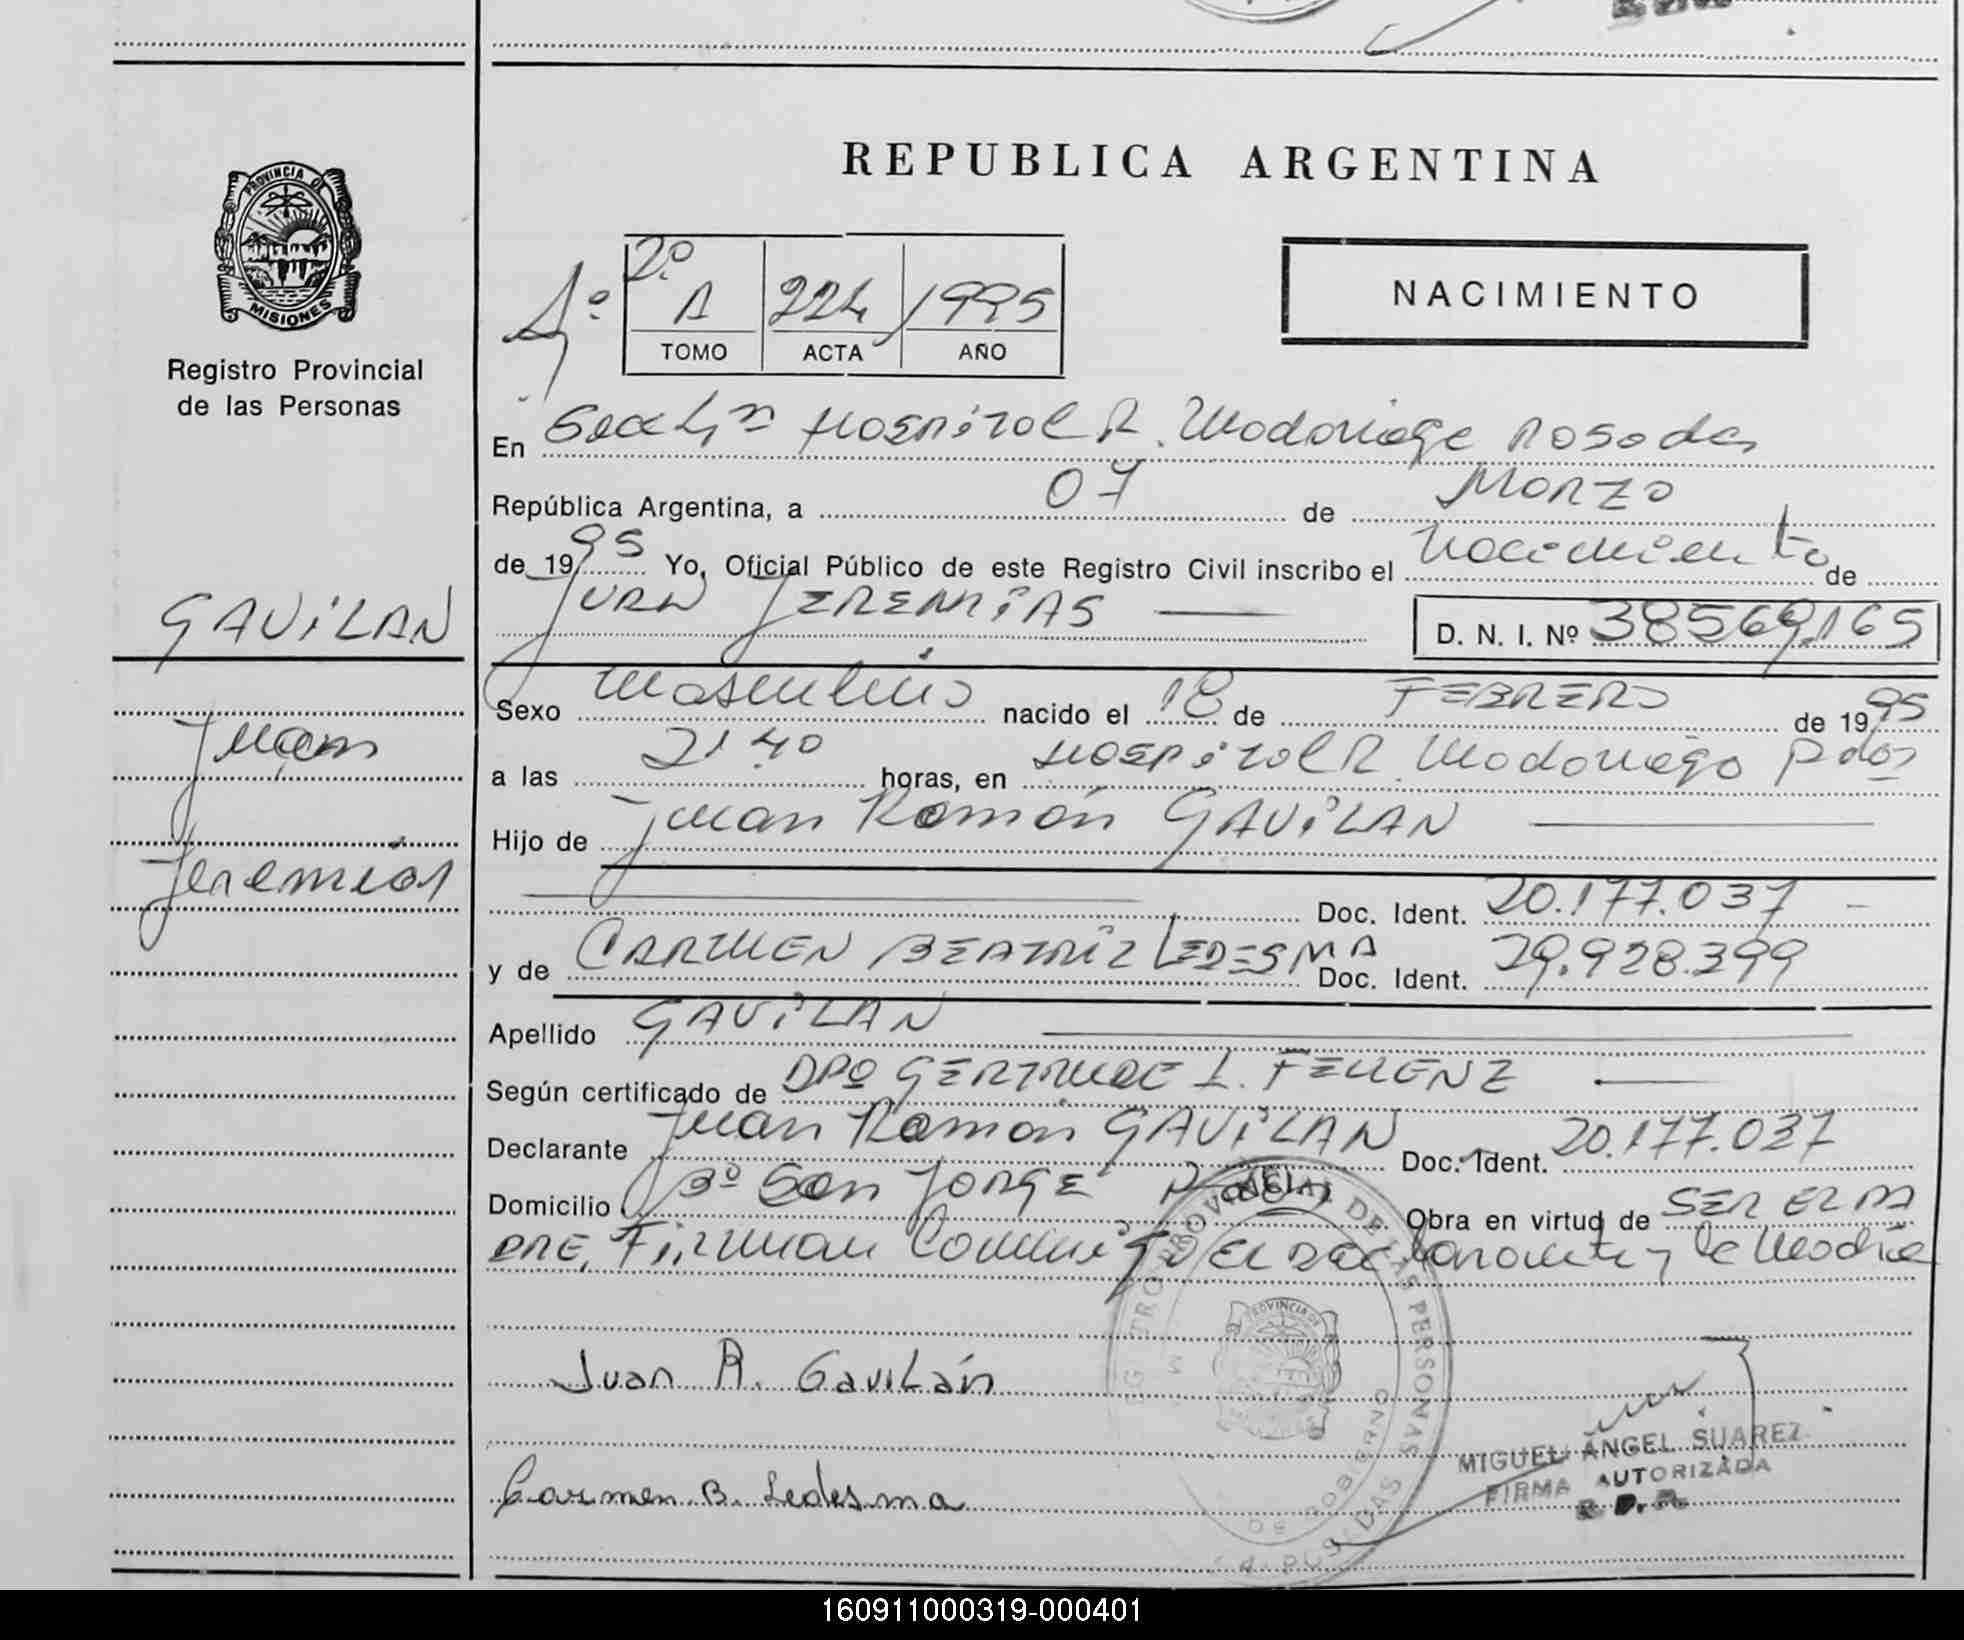 PROVINCIA DE
MISIONES
Registro Provincial
de las Personas
REPUBLICA ARGENTINA
2º
A 224 1995
TOMO ACTA AÑO
NACIMIENTO
En Hospital R. Madariaga Posadas
República Argentina, a 07 de Marzo
de 1995 Yo, Oficial Público de este Registro Civil inscribo el nacimiento de
JUAN JEREMIAS
D. N. I. Nº 38569.165
GAVILAN
Juan
Jeremias
Sexo Masculino nacido el 18 de FEBRERO de 1995
a las 21 40 horas, en Hospital R. Madariaga Pdas
Hijo de Juan Ramón GAVILAN
Doc. Ident. 20.177.037
y de CARMEN BEATRIZ LEDESMA Doc. Ident. 29.928.399
Apellido GAVILAN
Según certificado de GERTRUDE I.
Declarante Juan Ramon GAVILAN Doc. Ident. 20.177.037
Domicilio Bº San JORGE Obra en virtud de SER EL PA
DRE, Firman Conmigo EL Declarante y la Madre
Juan R. Gavilán
Carmen B. Ledesma
MIGUEL ÁNGEL SUAREZ
FIRMA AUTORIZADA
R. P. P.
160911000319-000401